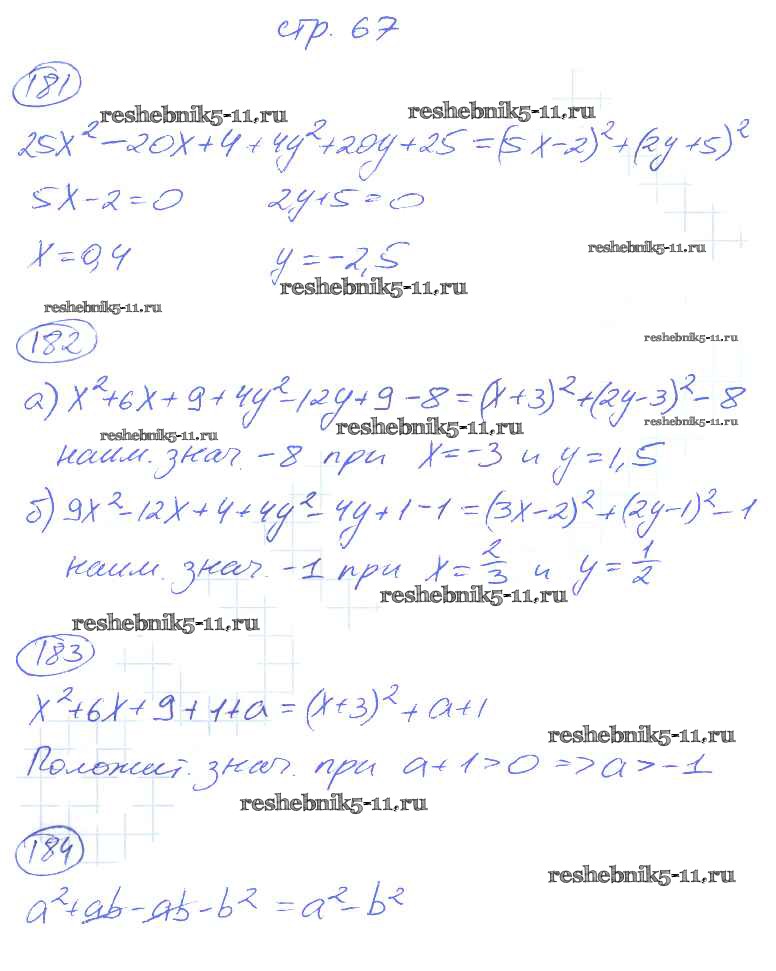 стр. 67
181
reshebnik5-11.ru reshebnik5-11.ru
25x² - 20x + 4 + 4y² + 20y + 25 = (5x-2)² + (2y+5)²
5x-2=0 2y+5=0
reshebnik5-11.ru
x=0,4 y=-2,5
reshebnik5-11.ru
reshebnik5-11.ru
182
reshebnik5-11.ru
а) x²+6x+9+4y²-12y+9-8=(x+3)²+(2y-3)²-8
reshebnik5-11.ru reshebnik5-11.ru reshebnik5-11.ru
наим. знач. -8 при x=-3 и y=1,5
б) 9x²-12x+4+4y²-4y+1-1=(3x-2)²+(2y-1)²-1
наим. знач. -1 при x=2/3 и y=1/2
reshebnik5-11.ru
reshebnik5-11.ru
183
x²+6x+9+1+a=(x+3)²+a+1
reshebnik5-11.ru
Положит. знач. при a+1>0 => a>-1
reshebnik5-11.ru
184
reshebnik5-11.ru
a²+ab-ab-b²=a²-b²